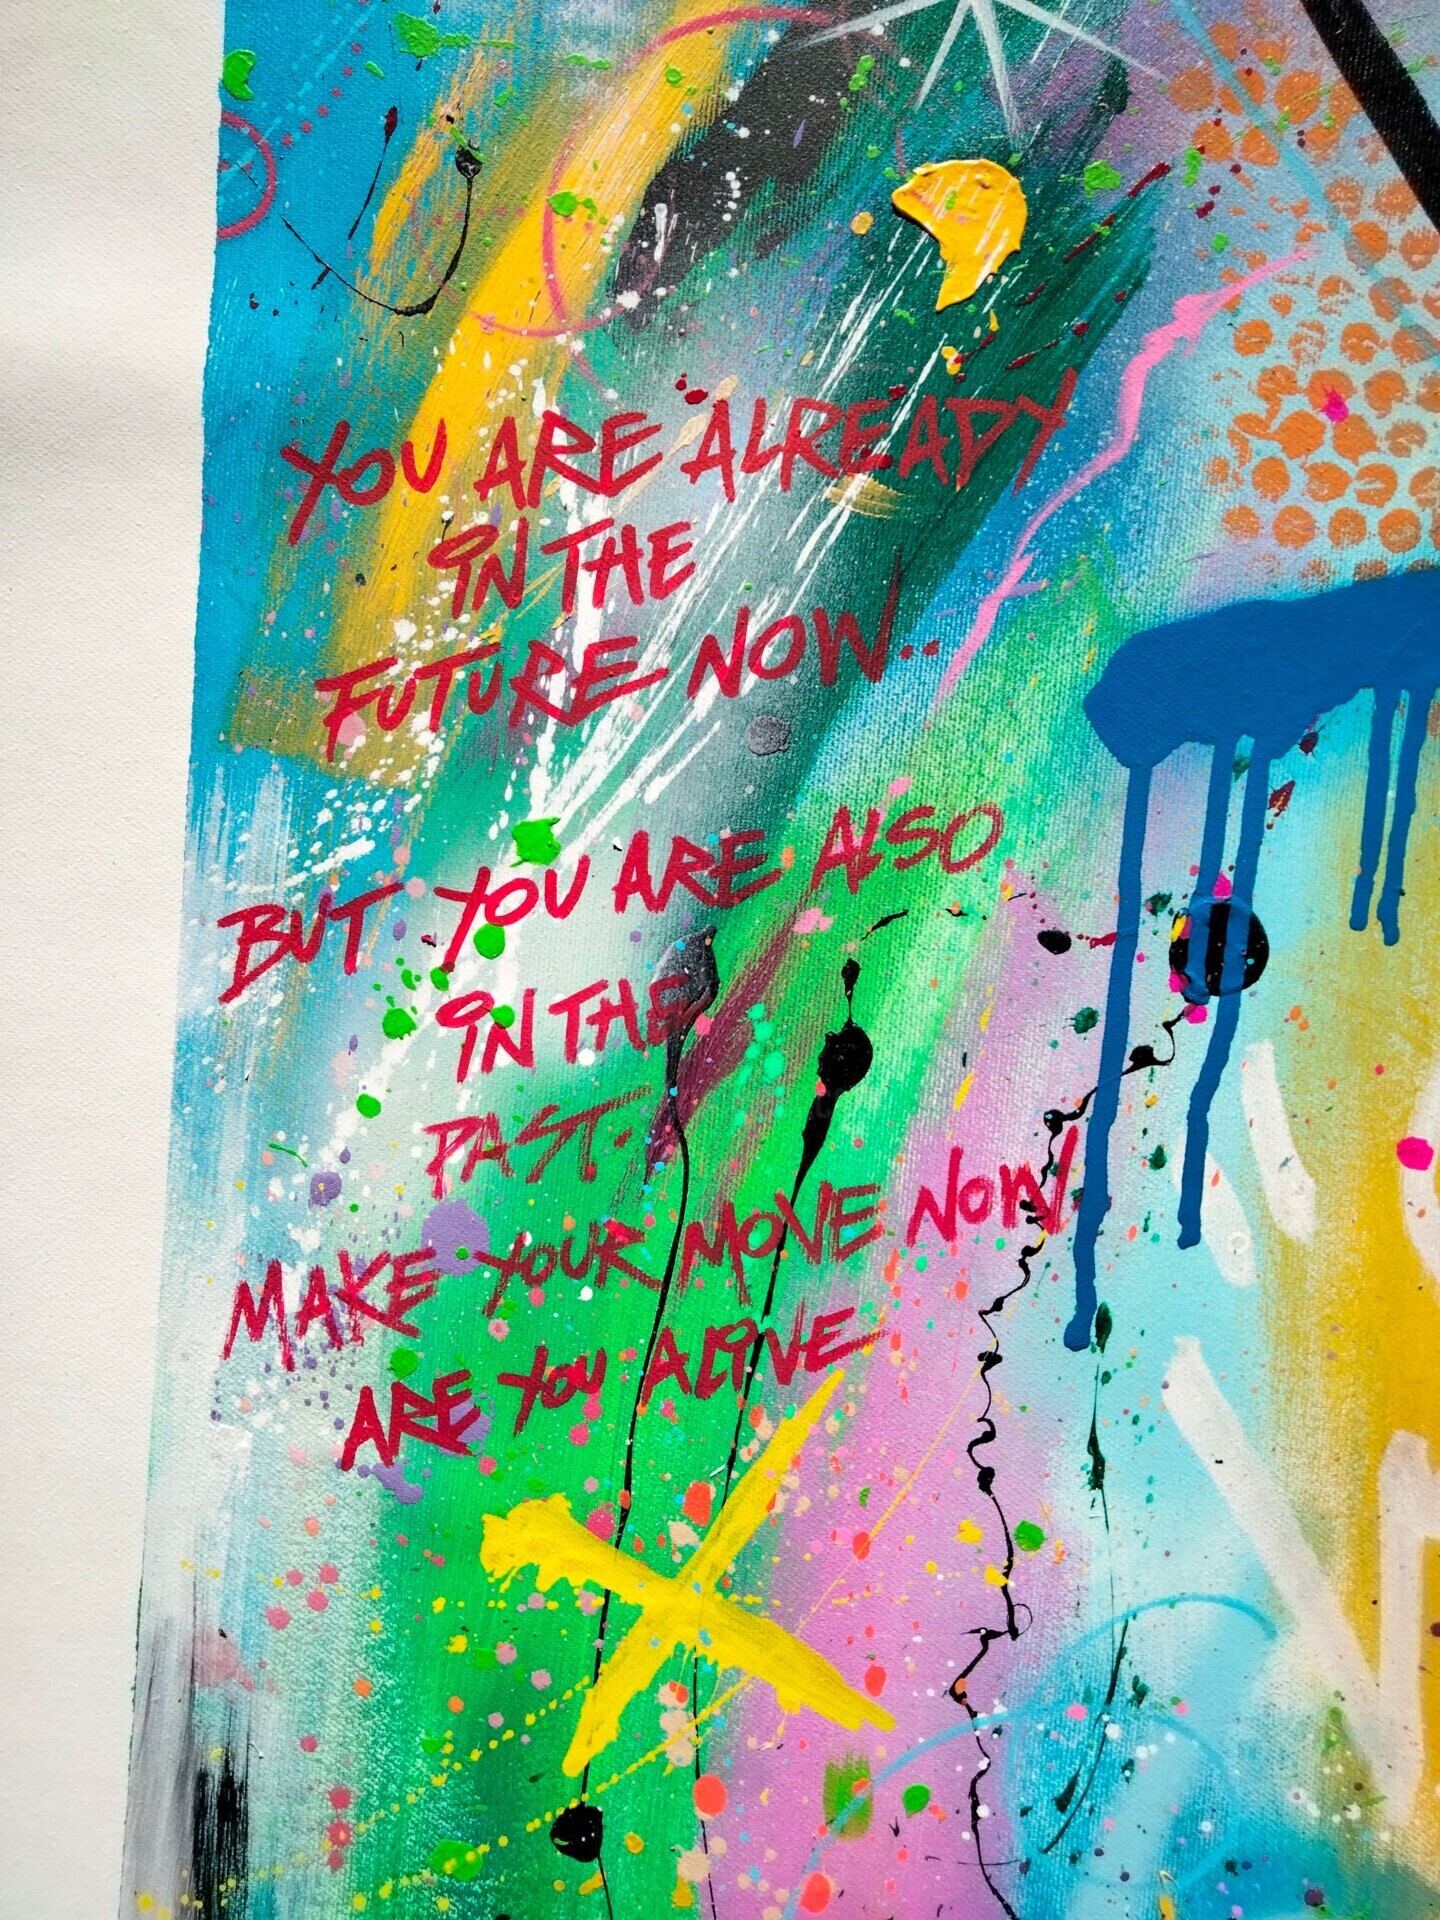 YOU ARE ALREADY
IN THE
FUTURE NOW..
BUT YOU ARE ALSO
IN THE
PAST.
MAKE YOUR MOVE NOW.
ARE YOU ALIVE